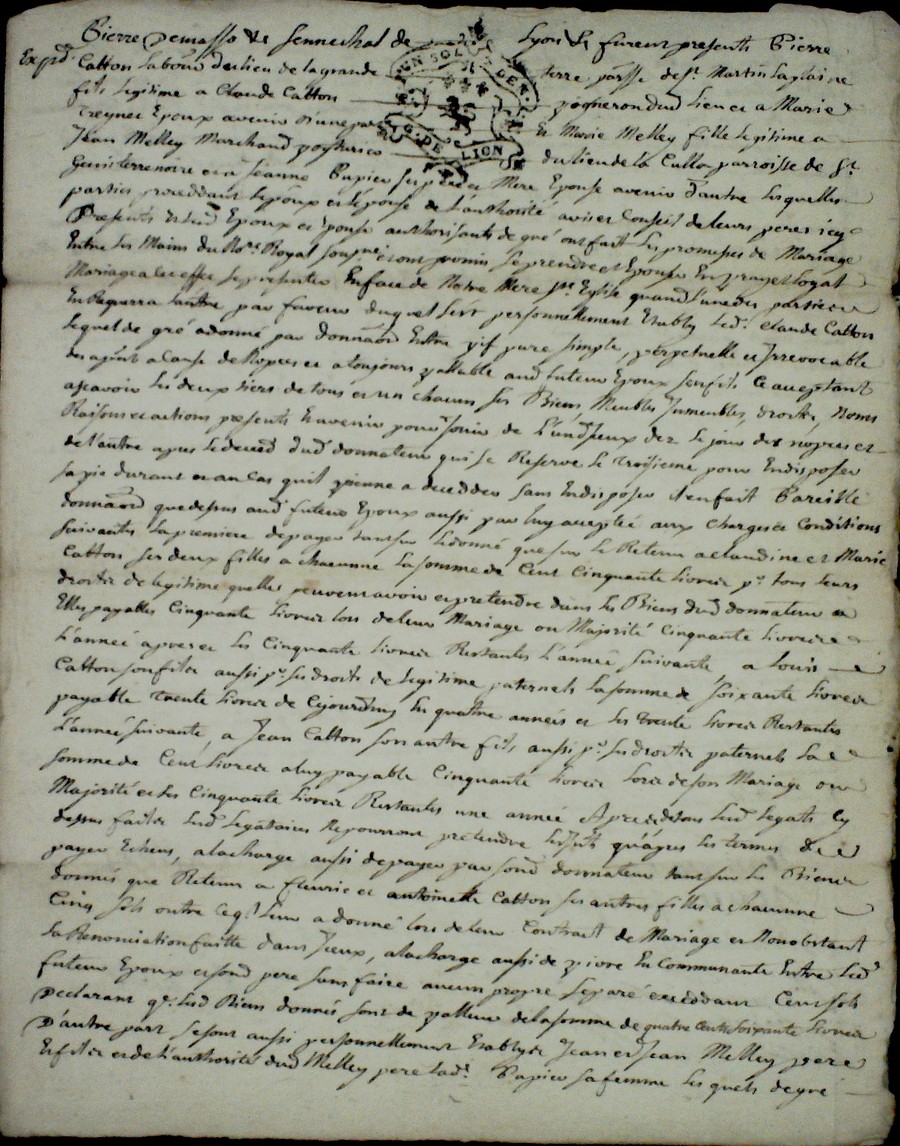 Pierre Demasso &c Sennechal de Lyon &c furent presents Pierre
Exped
Catton Labour du lieu de la grande terre parsse de St Martin Laplaine
fils legitime a Claude Catton vigneron dud lieu et a Marie
epoux avenir d'une part Et Marie Melley fille legitime a
Jean Melley Marchand du lieu de la Culla parroisse de St
Genis terrenoire et a Jeanne Papier ses pere et Mere Epouse avenir d'autre lesquelles
parties proceddants lepoux et lepouse de l'authorité avis et Conseil de leurs peres icy
Presents et lesd Epoux et Epouse authorisants de gré ont fait les promesses de Mariage
Entre les Mains du Nore Royal soussigné et ont promis se prendre et Epouser En vray et loyal
Mariage a cet effet se presenter En face de Notre Mere Ste Eglise quand l'une des parties
En Requerra l'autre par faveur duquel s'est personnellement Etably led. Claude Catton
lequel de gré a donné par donnaon Entre vif pure simple, perpetuelle et Irrevocable
des a pnt a cause de Nopces et a toujours vallable aud futeur Epoux son fils Ce acceptant
ascavoir les deux tiers de tous et un chacun ses Biens, Meubles Immeubles, droits, Noms
Raisons et actions presents et avenir pour Jouir de L'un d'Iceux dez le jour des nopces et
de l'autre apres le deced dud donnateur qui se Reserve le Troisieme pour En disposer
sa vie durant et an cas quil vienne a decedder sans En disposer Il en fait Pareille
donnaon que dessus aud futeur Epoux aussi par luy accepté aux charges et Conditions
suivantes La premiere de payer tant sur le donné que sur le Retenu a Claudine et Marie
Catton ses deux filles a chacunne la somme de Cent Cinquante livres pr tous leurs
droits de legitime quelles peuvent avoir et pretendre dans les Biens dud donnateur a
Elles payables Cinquante livres lors de leur Mariage ou Majorité Cinquante livres
L'année apres et les Cinquante livres Restantes L'année suivante a louis
Catton son fils aussi pr ses droits de legitime paternels la somme de soixante livres
payable Trente livres de Cejourdhuy En quatre années et les Trente livres Restantes
L'année suivante, a Jean Catton son autre fils aussi pr ses droits paternels la
somme de Cent livres a luy payable Cinquante livres lors de son Mariage ou
Majorité et les Cinquante livres Restantes une année Apres lesd legats cy
dessus faits lesd legataires Ne pourront pretendre qu'apres les termes de
payer Echeus, a la charge aussi de payer par sond donnateur tant sur les Biens
donnés que Retenu a fleurie et antoinette Catton ses autres filles a chacunne
Cinq sols outre ce ql leur a donné lors de leur Contract de Mariage et Nonobstant
la Renonciation faitte dans Iceux, a la charge aussi de vivre En Communauté Entre led
futeur Epoux et sond pere sans faire aucun propre separé exceddant Cent sols
Declarant qe lesd Biens donnés sont de valleur de la somme de quatre Cents soixante livres
D'autre part se sont aussi personnellement Etablys Jean et Jean Melley pere
Et fils et de l'authorité dud Melley pere lad. Papier sa femme lesquels de gré
DE LION